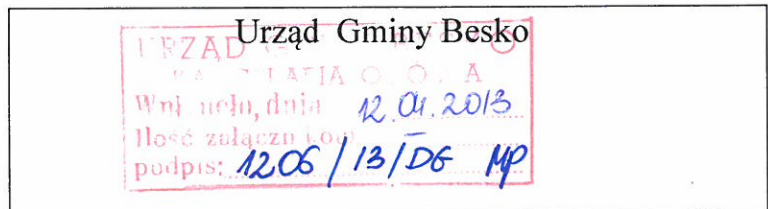 Urząd Gminy Besko
URZĄD
Wpłynęło, dnia 12.04.2013
Ilość załączników –
podpis: 1206/13/DG MP